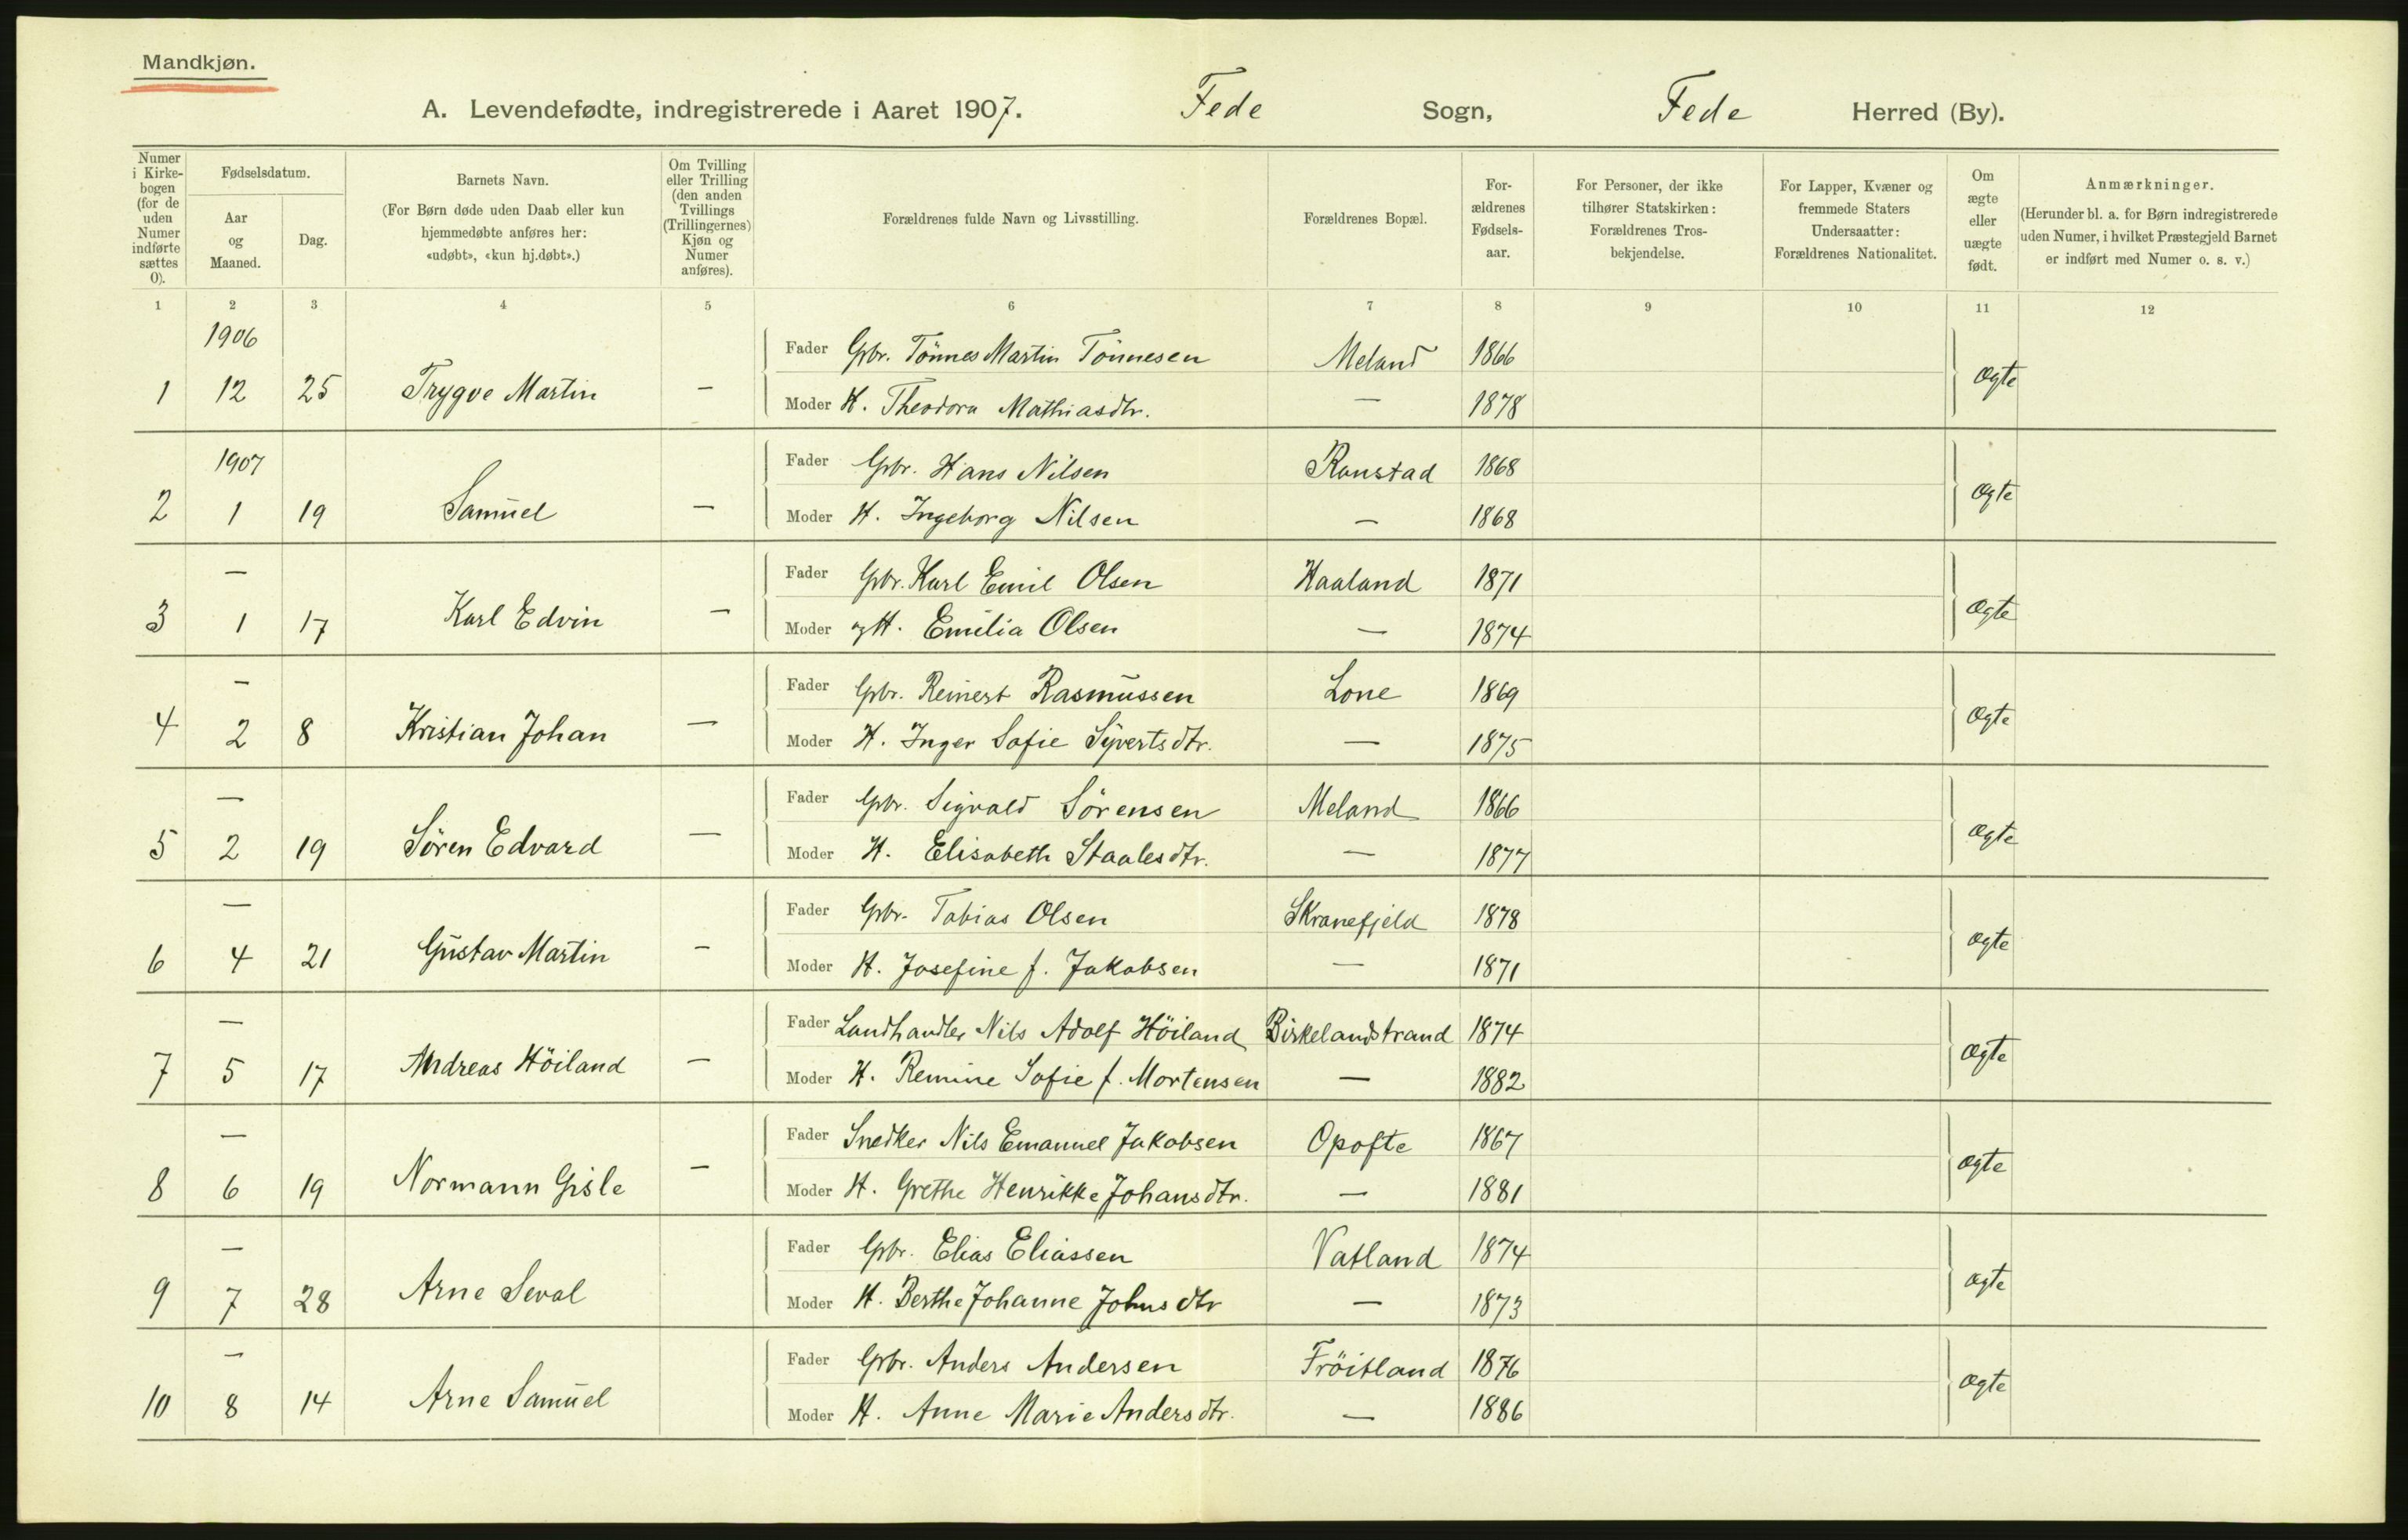 Mandkjøn.
A. Levendefødte, indregistrerede i Aaret 1907. Fede Sogn, Fede Herred (By).
Numer i Kirke-bogen (for de uden Numer indførte sættes 0).
Fødselsdatum.
Aar og Maaned.
Dag.
Barnets Navn.
(For Børn døde uden Daab eller kun hjemmedøbte anføres her: «udøbt», «kun hj.døbt».)
Om Tvilling eller Trilling (den anden Tvillings (Trillingernes) Kjøn og Numer anføres).
Forældrenes fulde Navn og Livsstilling.
Forældrenes Bopæl.
For-ældrenes Fødsels-aar.
For Personer, der ikke tilhører Statskirken: Forældrenes Tros-bekjendelse.
For Lapper, Kvæner og fremmede Staters Undersaatter: Forældrenes Nationalitet.
Om ægte eller uægte født.
Anmærkninger.
(Herunder bl. a. for Børn indregistrerede uden Numer, i hvilket Præstegjeld Barnet er indført med Numer o. s. v.)
1 2 3 4 5 6 7 8 9 10 11 12
1906
Fader Gbr. Tönnes Martin Tönnesen Meland 1866
1 12 25 Trygve Martin — Ægte
Moder H. Theodora Mathiasdtr. — 1878
1907
Fader Gbr. Hans Nilsen Ronstad 1868
2 1 19 Samuel — Ægte
Moder H. Ingeborg Nilsen — 1868
—
Fader Gbr. Karl Emil Olsen Haaland 1871
3 1 17 Karl Edvin — Ægte
Moder og H. Emilia Olsen — 1874
—
Fader Gbr. Reinert Rasmussen Lone 1869
4 2 8 Kristian Johan — Ægte
Moder H. Inger Sofie Syvertsdtr. — 1875
—
Fader Gbr. Sigvald Sörensen Meland 1866
5 2 19 Sören Edvard — Ægte
Moder H. Elisabeth Staalesdtr. — 1877
—
Fader Gbr. Tobias Olsen Skranefjeld 1878
6 4 21 Gustav Martin — Ægte
Moder H. Josefine f. Jakobsen — 1871
—
Fader Landhandler Nils Adolf Höiland Birkelandstrand 1874
7 5 17 Andreas Höiland — Ægte
Moder H. Remine Sofie f. Mortensen — 1882
—
Fader Snedker Nils Emanuel Jakobsen Opofte 1867
8 6 19 Normann Gisle — Ægte
Moder H. Grethe Henrikke Johansdtr. — 1881
—
Fader Gbr. Elias Eliassen Vatland 1874
9 7 28 Arne Seval Ægte
Moder H. Berthe Johanne Johnsdtr — 1873
—
Fader Gbr. Anders Andersen Fröitland 1876
10 8 14 Arne Samuel Ægte
Moder H. Anne Marie Andersdtr. — 1886